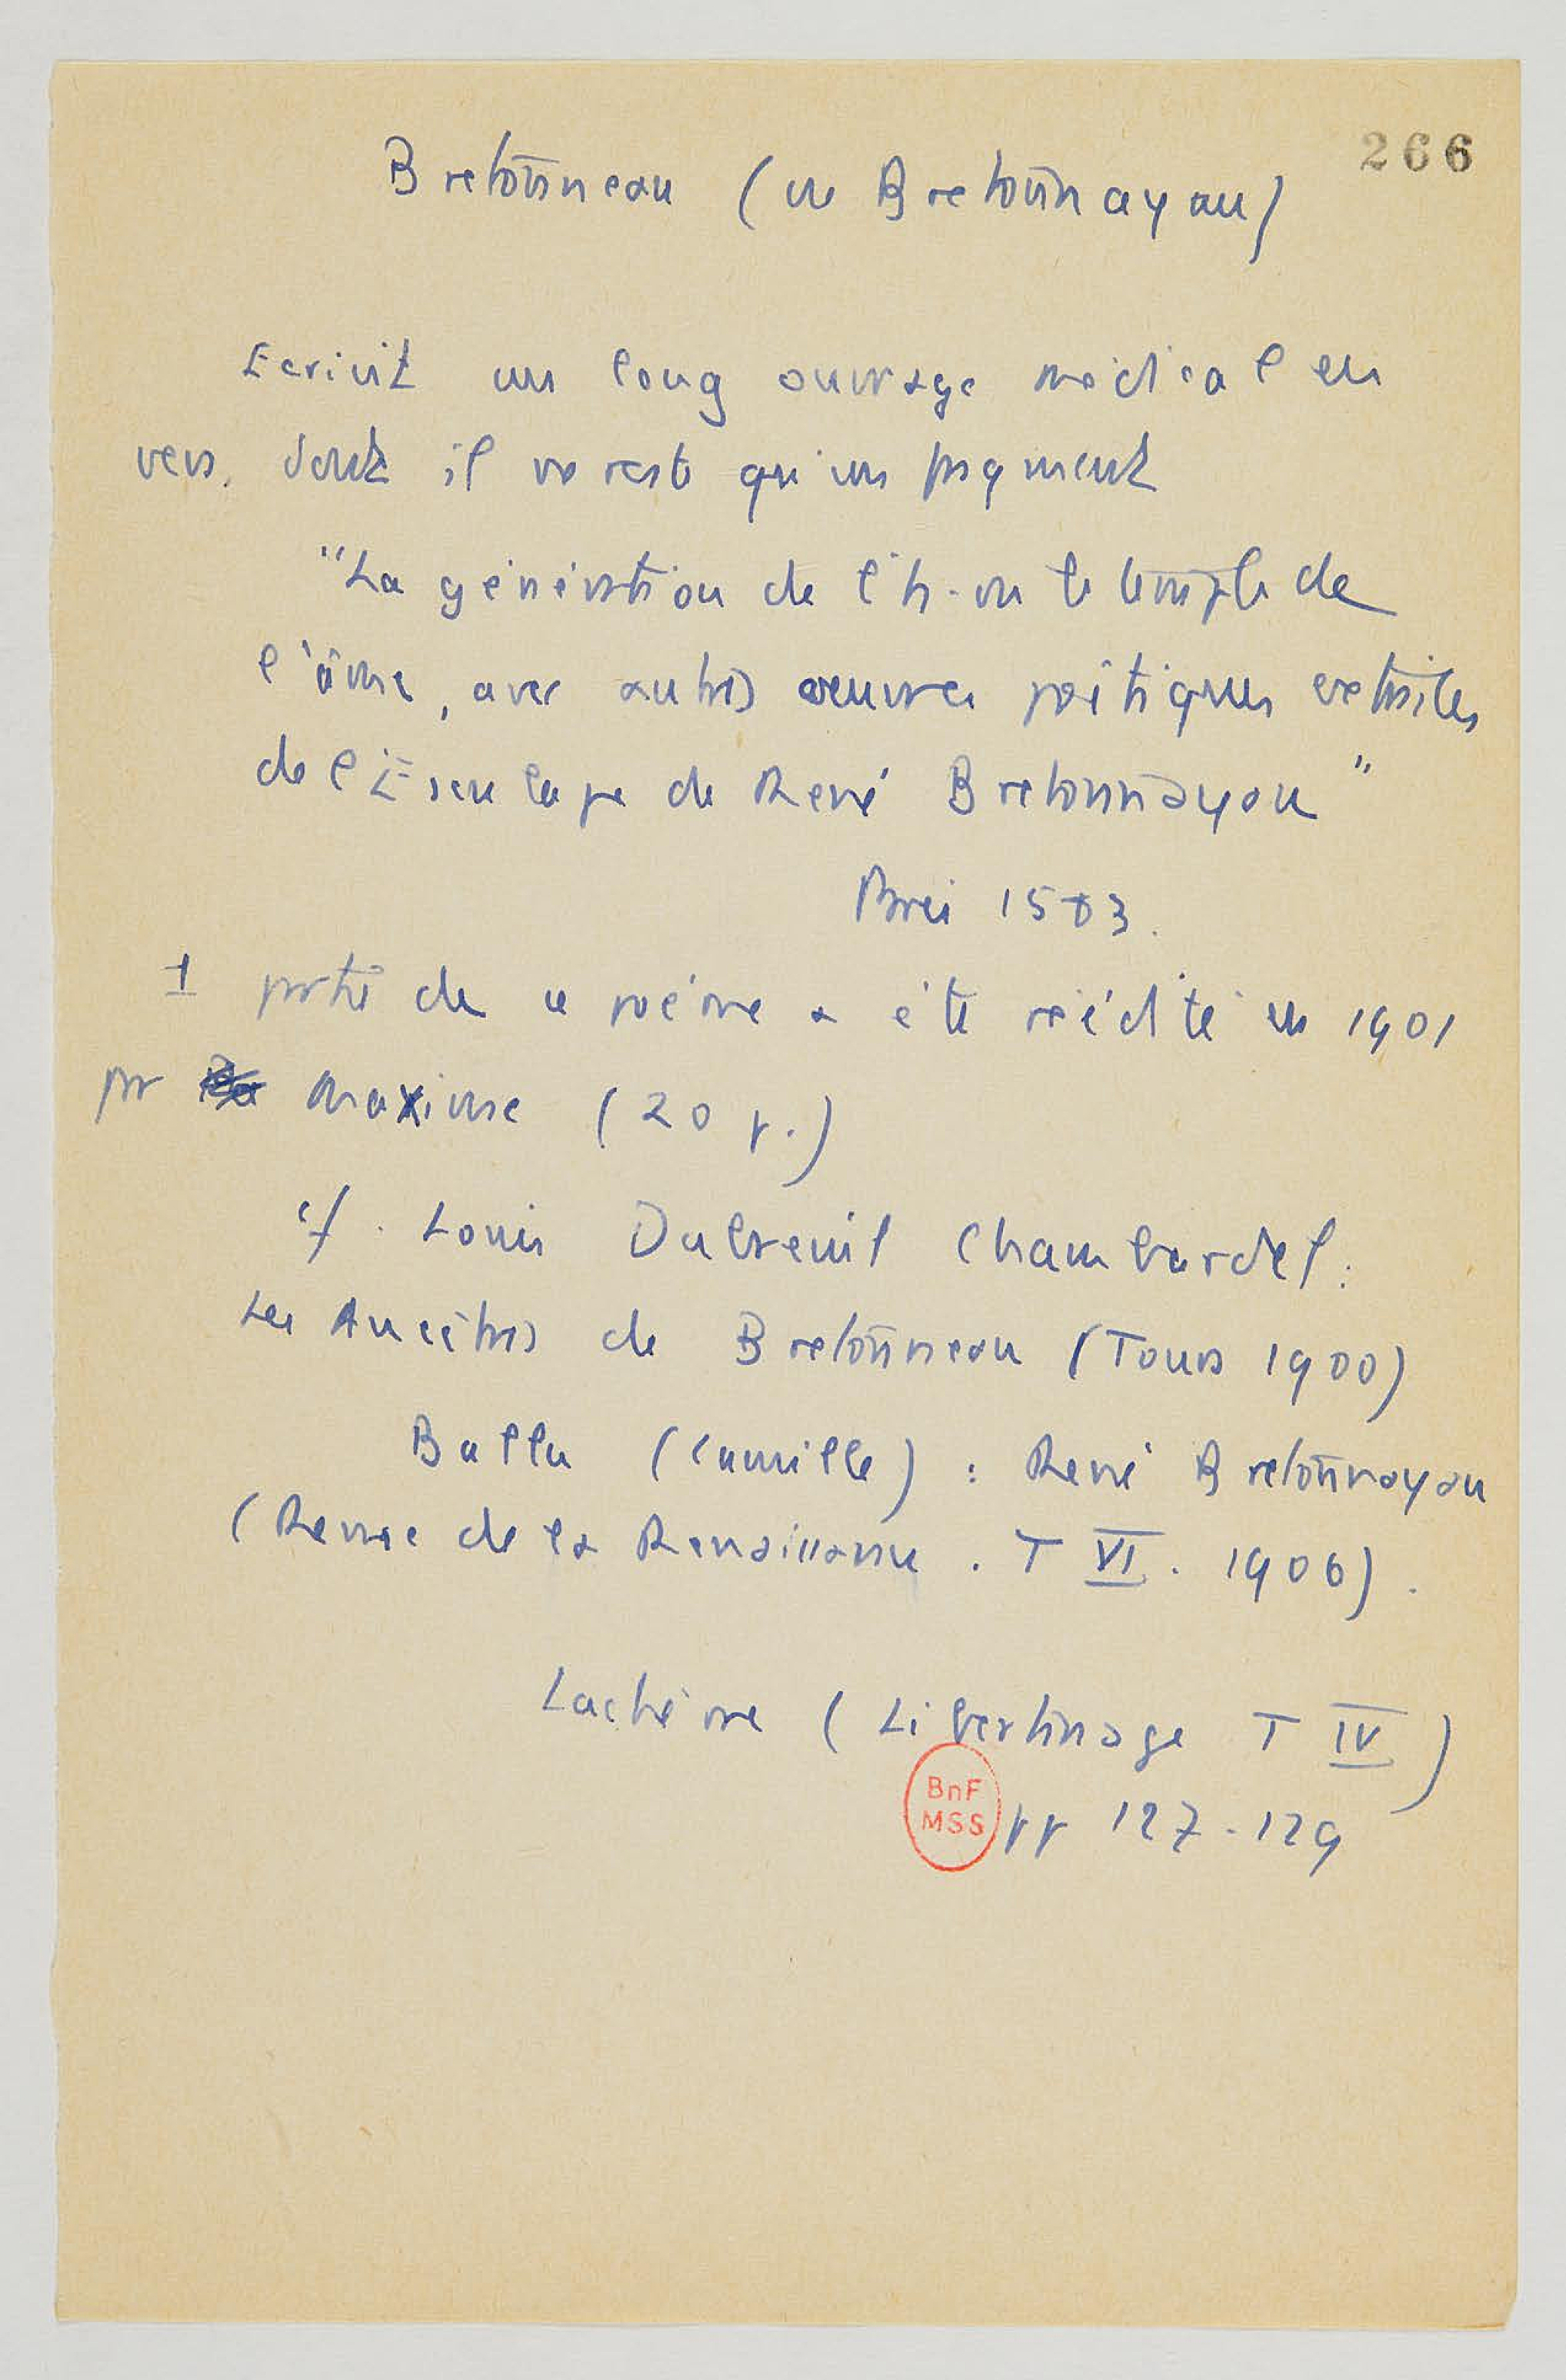 266
Bretonneau (ou Bretonnayau)
Ecrivit un long ouvrage médical en
vers. dont il ne reste qu'un fragment
"La génération de l'h. ou le temple de
l'âme, avec autres oeuvres poétiques extraites
de l'Esculape de René Bretonnayau"
Paris 1583.
1 partie de ce poème a été réédité en 1901
par Maxime (20 p.)
cf. Louis Dubreuil Chambardel :
Les Ancêtres de Bretonneau (Tours 1900)
Ballu (Camille) : René Bretonnayau
(Revue de la Renaissance. T VI. 1906).
Lachèvre (Libertinage T IV)
BnF
MSS
pp 127-129